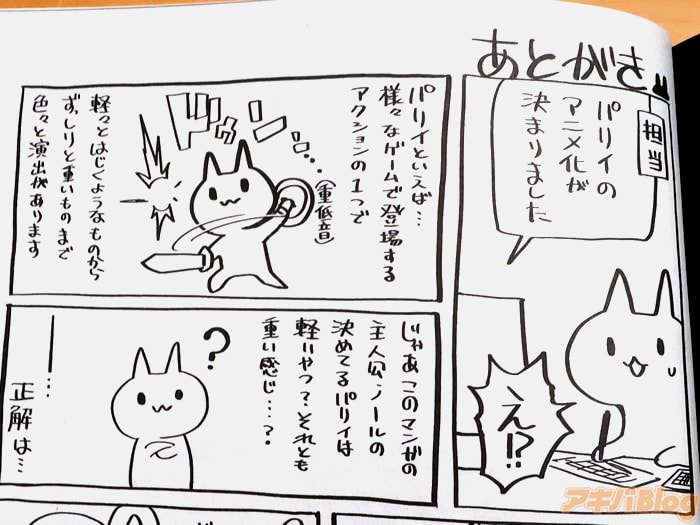 あとがき
担当
パリイの
アニメ化が
決まりました
え!?
パリイといえば…
様々なゲームで登場する
アクションの1つで
ドドッ…
(重低音)
軽々とはじくようなものから
ずっしりと重いものまで
色々と演出があります
じゃあこのマンガの
主人公ノールの
決めてるパリイは
軽いやつ?それとも
重い感じ…?
?
――…
正解は…
アキバBlog